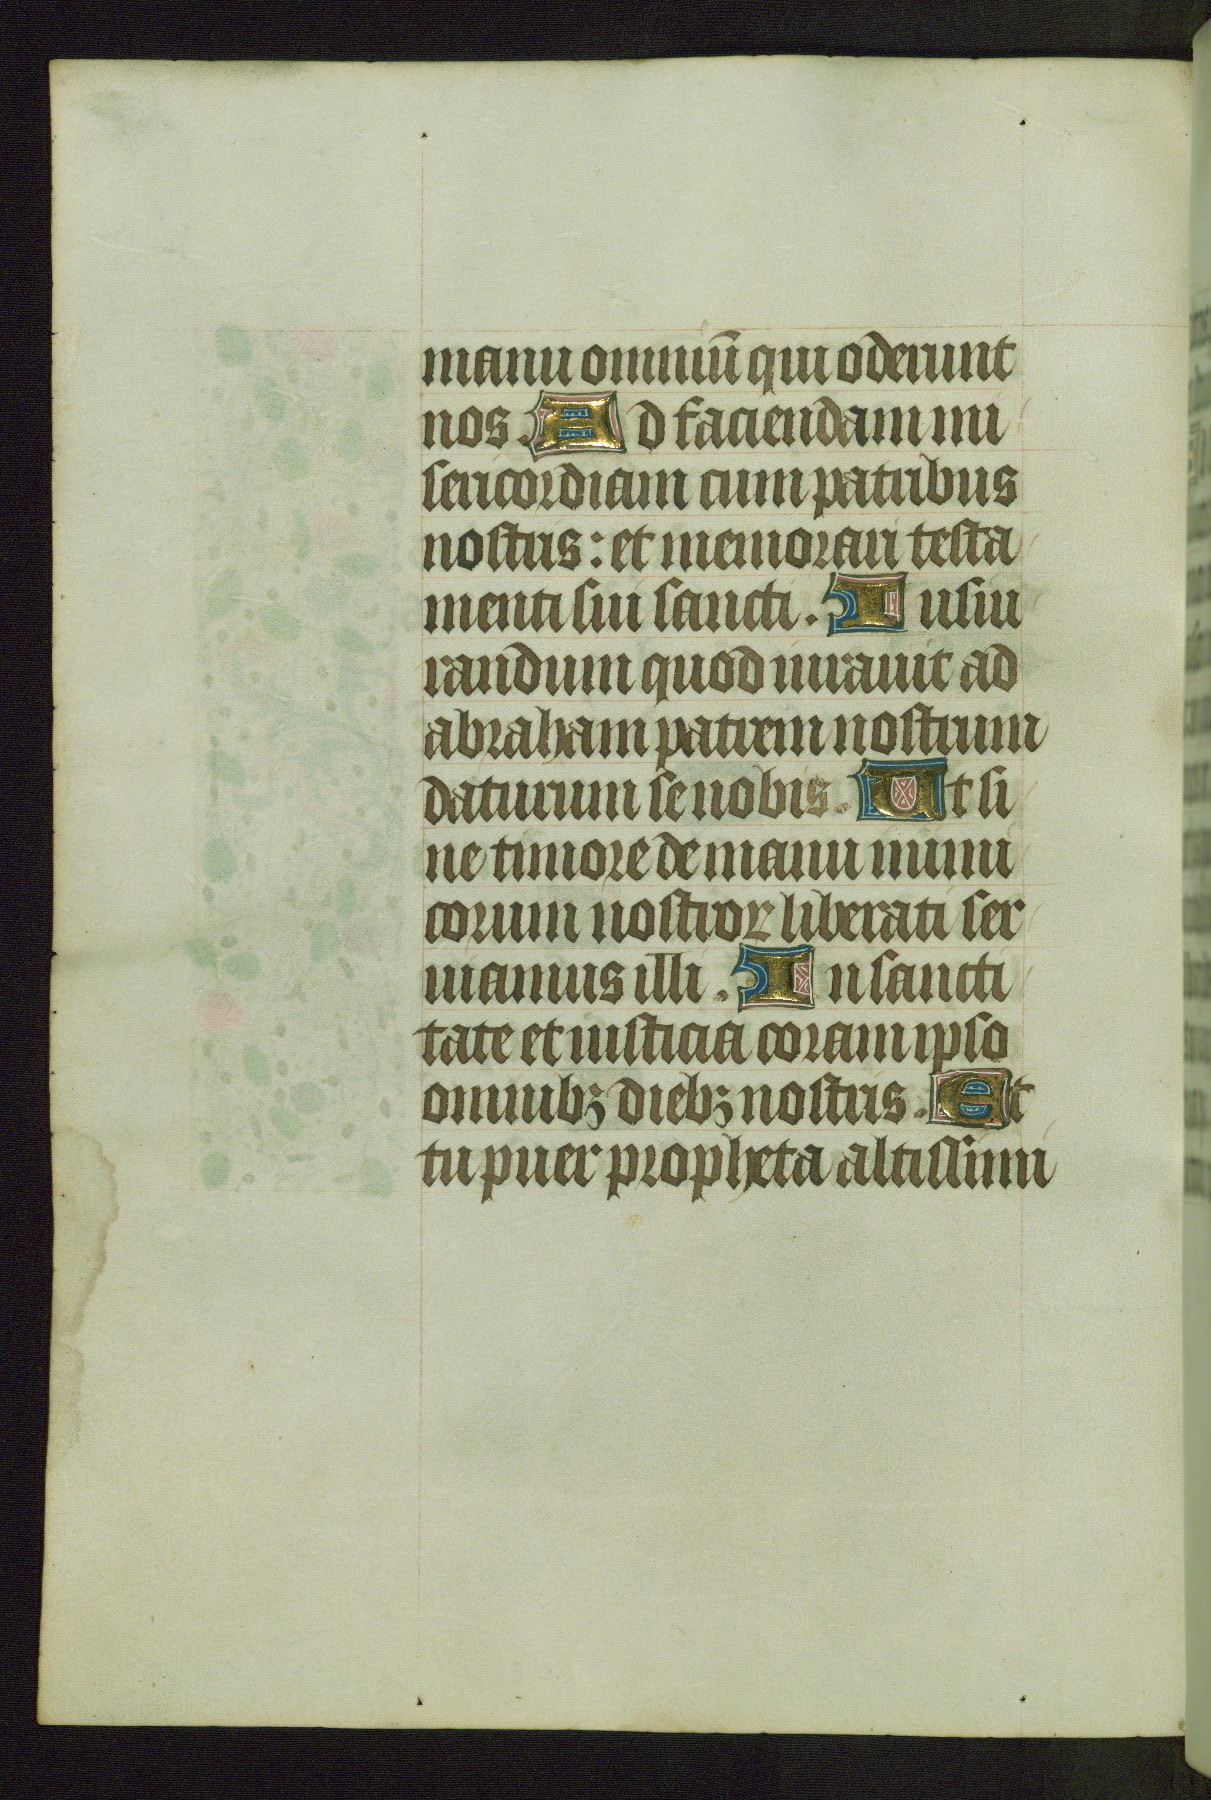 manu omniū qui oderunt
nos. Ad faciendam mi
sericordiam cum patribus
nostris: et memorari testa
menti sui sancti. Iusiu
randum quod iurauit ad
abraham patrem nostrum
daturum se nobis. Ut si
ne timore de manu inimi
corum nostroꝝ liberati ser
uiamus illi. In sancti
tate et iusticia coram ipso
omnibꝫ diebꝫ nostris. Et
tu puer propheta altissimi